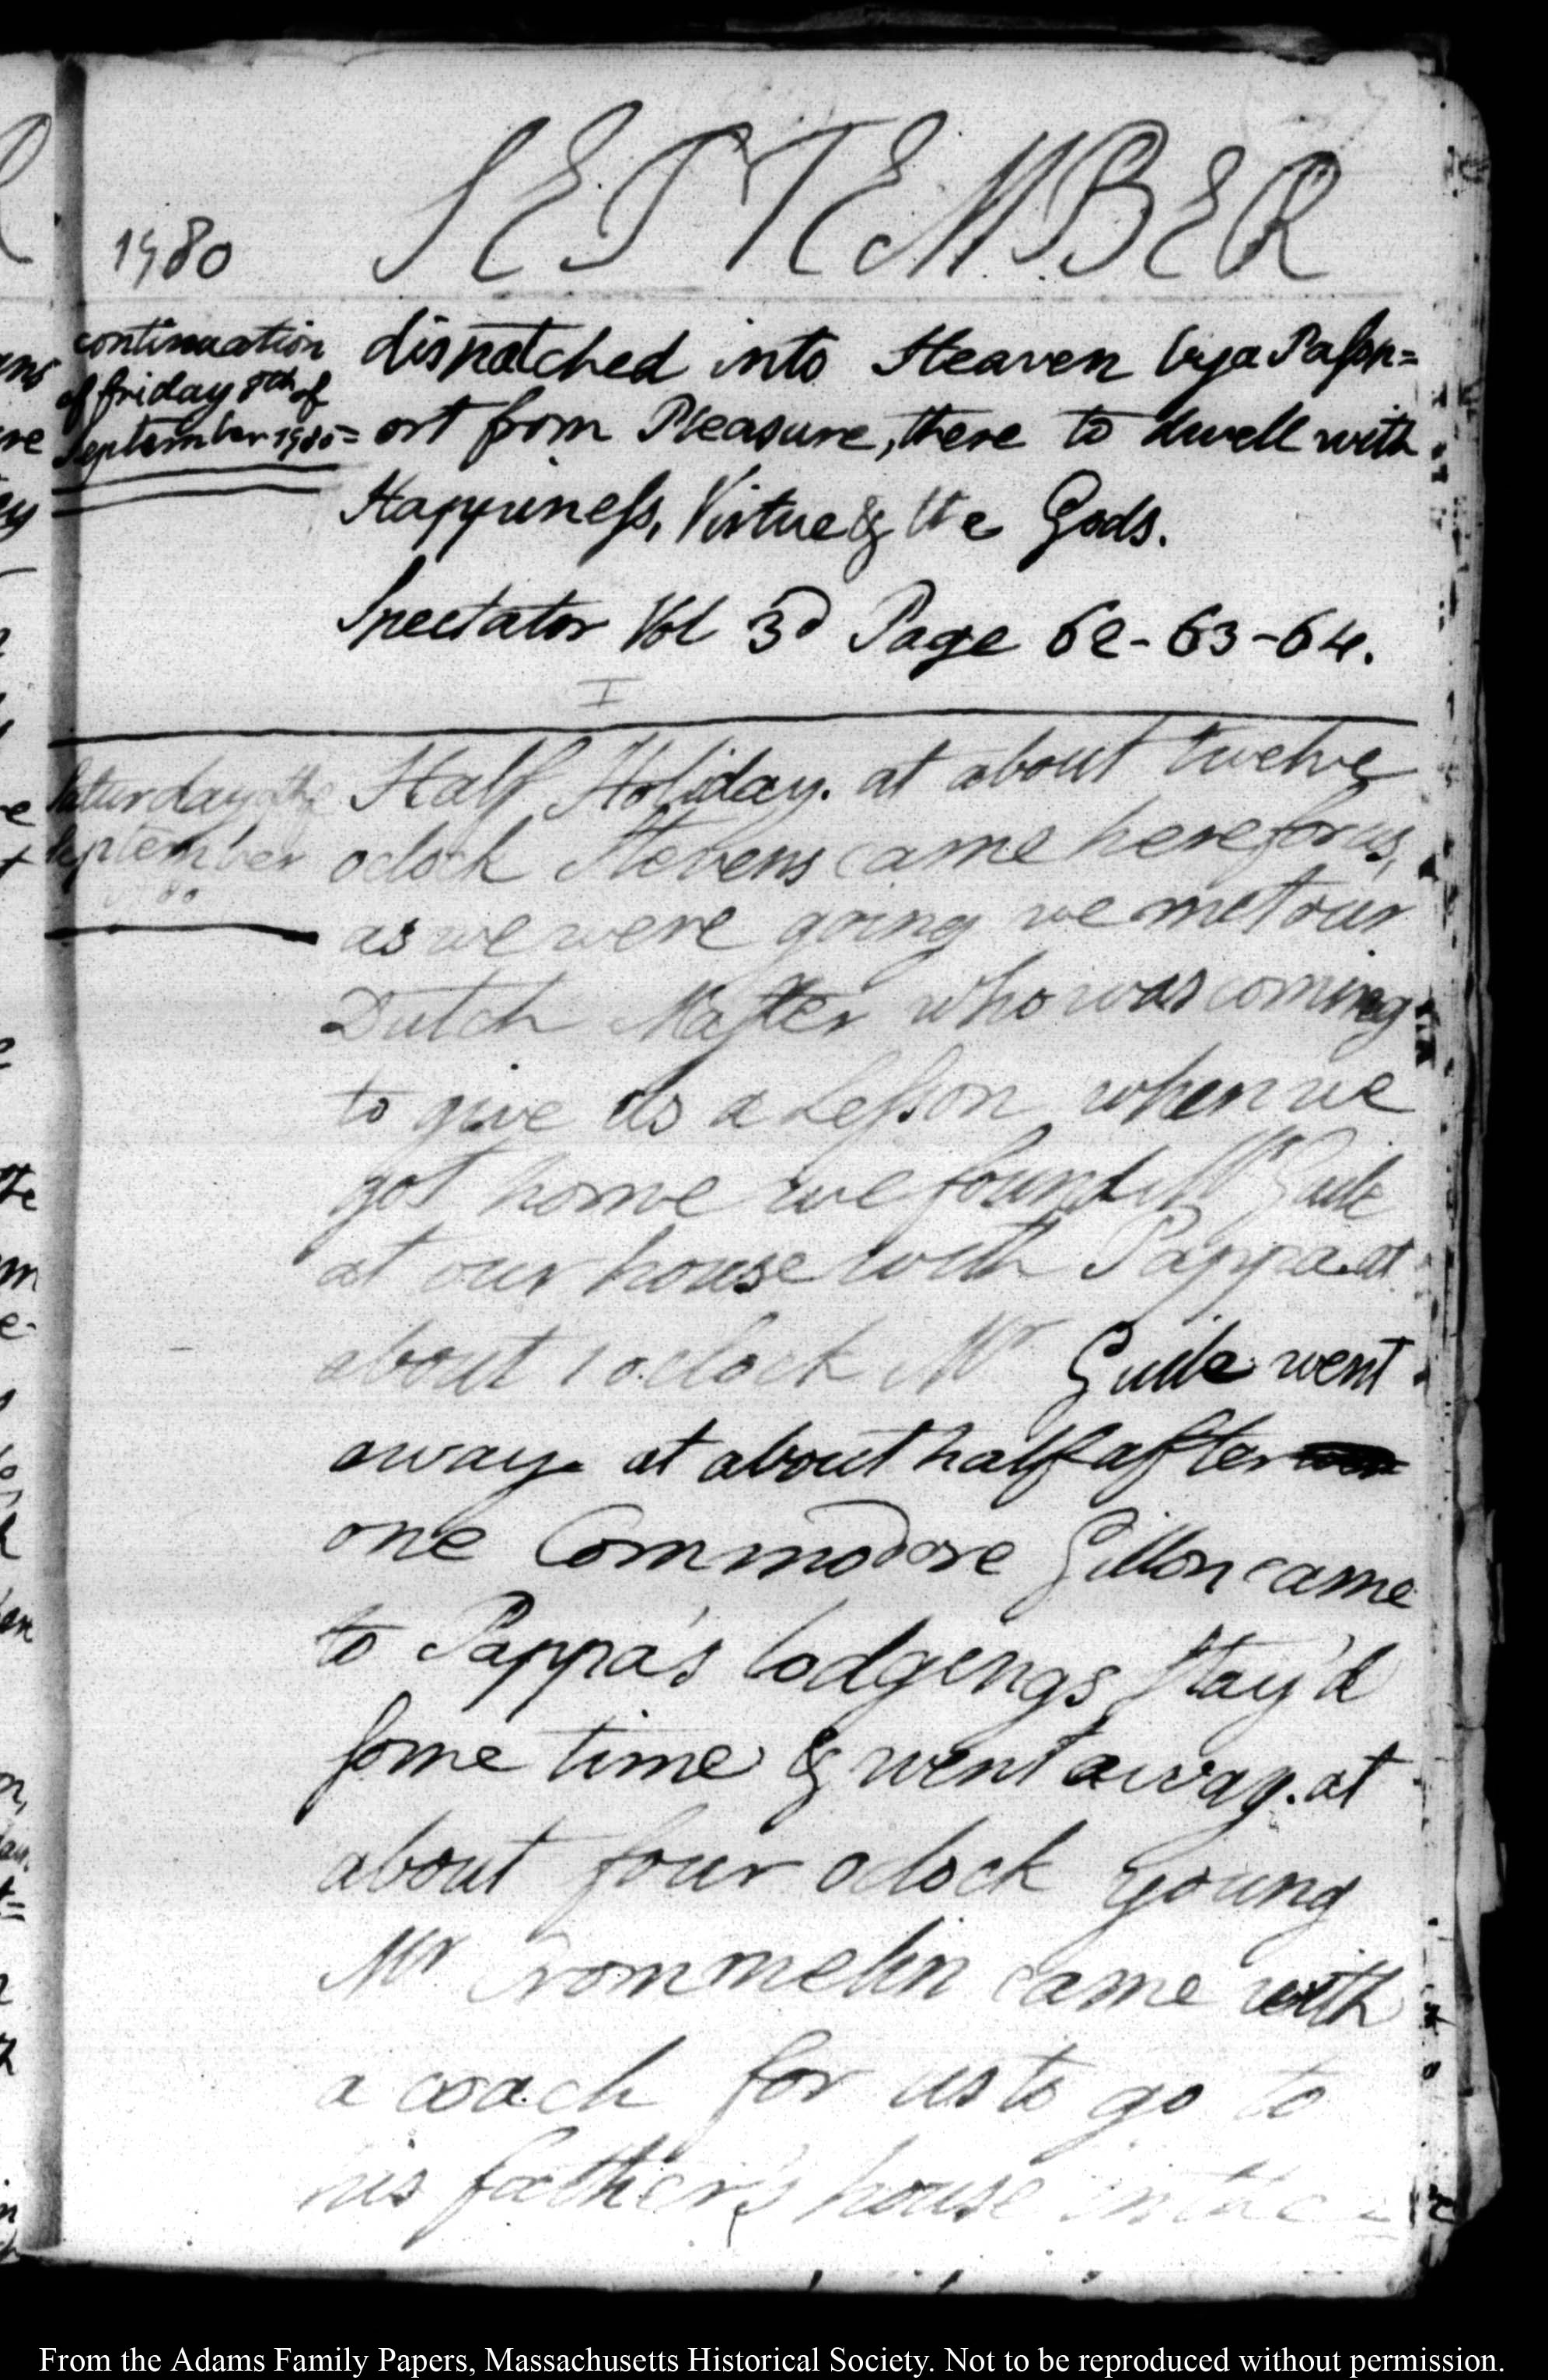 SEPTEMBER
1780
continuation
of friday 8th of
September 1780=
dispatched into Heaven by a Passp=
ort from Pleasure, there to dwell with
Happiness, Virtue & the Gods.
Spectator Vol 3d Page 62-63-64.
Saturday 9th
September
80
Half Holiday. at about twelve
oclock Stevens came here for us,
as we were going we met our
Dutch Master who was coming
to give us a Lesson when we
got home we found Mr Guile
at our house with Pappa. at
about 1 o.clock Mr Guile went
away. at about half after
one Commodore Gillon came
to Pappa's lodgings stay'd
some time & went away. at
about four oclock young
Mr Crommelin came with
a coach for us to go to
his father's house in the
From the Adams Family Papers, Massachusetts Historical Society. Not to be reproduced without permission.